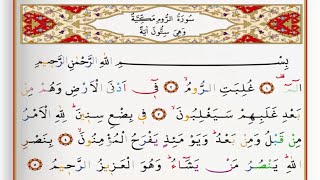 سُورَةُ الرُّومِ مَكِّيَّةٌ
وَهِيَ سِتُّونَ اٰيَةً
بِسْمِ اللّٰهِ الرَّحْمٰنِ الرَّحٖيمِ
الٓمٓ ۚ ﴿١﴾ غُلِبَتِ الرُّومُ ۙ ﴿٢﴾ فٖٓى اَدْنَى الْاَرْضِ وَهُمْ مِنْ
بَعْدِ غَلَبِهِمْ سَيَغْلِبُونَ ۙ ﴿٣﴾ فٖى بِضْعِ سِنٖينَ ؕ لِلّٰهِ الْاَمْرُ
مِنْ قَبْلُ وَمِنْ بَعْدُ ؕ وَيَوْمَئِذٍ يَفْرَحُ الْمُؤْمِنُونَ ۙ ﴿٤﴾ بِنَصْرِ
اللّٰهِ ؕ يَنْصُرُ مَنْ يَشَٓاءُ ؕ وَهُوَ الْعَزٖيزُ الرَّحٖيمُ ۙ ﴿٥﴾